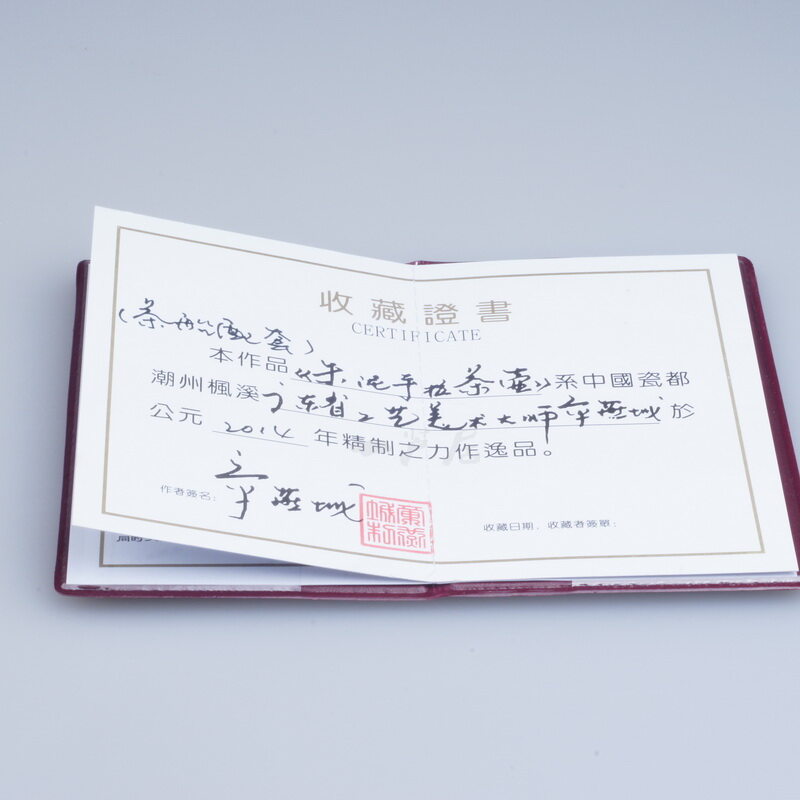 收藏證書
CERTIFICATE
(茶船配套)
本作品《朱泥手拉茶壶》系中國瓷都
潮州楓溪广东省工艺美术大师章燕城於
公元 2014 年精制之力作逸品。
作者簽名: 章燕城
收藏日期、收藏者簽單: